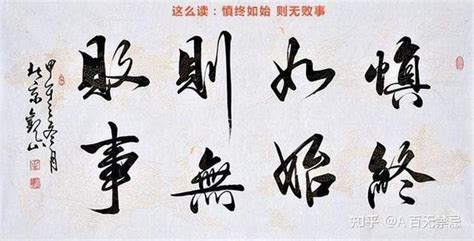 这么读：慎终如始 则无败事
慎終
如始
則無
敗事
北京
知乎 @A 百无禁忌